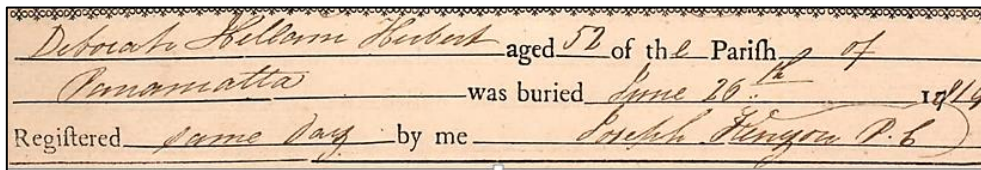 Deborah Hellam Herbert aged 52 of the Pariſh of
Parramatta was buried June 26th 1819
Regiſtered same Day by me Joseph Kenyon P. C